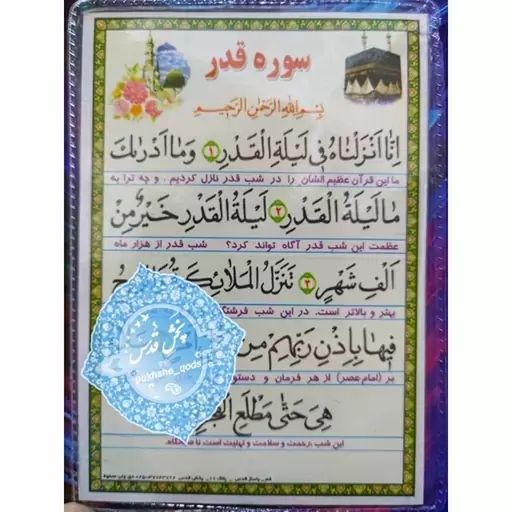 سوره قدر
بِسْمِ اللَّهِ الرَّحْمٰنِ الرَّحیمِ
اِنّا اَنْزَلْناهُ فی لَیْلَةِ الْقَدْرِ ۱ وَما اَدْرٰیكَ
ما این قرآن عظیم الشان را در شب قدر نازل کردیم . و چه ترا به
ما لَیْلَةُ الْقَدْرِ ۲ لَیْلَةُ الْقَدْرِ خَیْرٌ مِنْ
عظمت این شب قدر آگاه تواند کرد؟ شب قدر از هزار ماه
اَلْفِ شَهْرٍ ۳ تَنَزَّلُ الْمَلائِكَةُ
بهتر و بالاتر است. در این شب
فیها بِاِذْنِ رَبِّهِمْ مِنْ
بر (امام عصر) از هر فرمان و
هِیَ حَتّٰی مَطْلَعِ
این شب رحمت و سلامت و تهنیت است تا
پخش قدس
pakhshe_qods